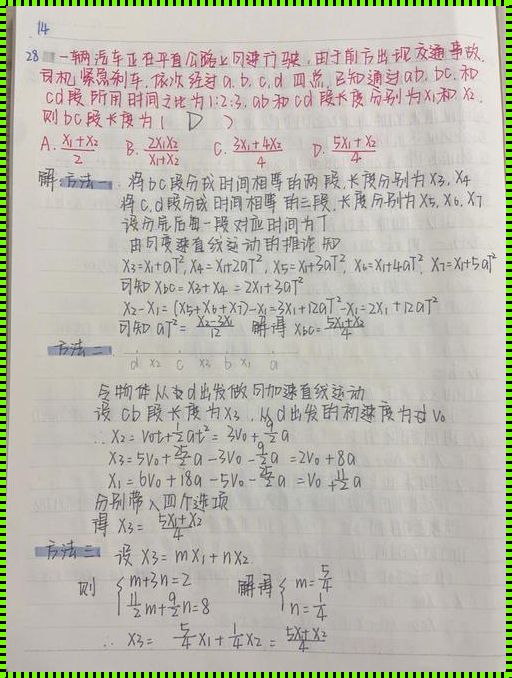 14
28 一辆汽车正在平直公路上匀速行驶,由于前方出现交通事故,
司机紧急刹车,依次经过a.b.c.d 四点,已知通过ab, bc, 和
cd段所用时间之比为1:2:3, ab和cd段长度分别为X₁和X₂
则bc段长度为( D )
A. (X₁+X₂)/2 B. 2X₁X₂/(X₁+X₂) C. (3X₁+4X₂)/4 D. (5X₁+X₂)/4
解:方法一. 将bc段分成时间相等的两段,长度分别为X₃, X₄
将c,d段分成时间相等的三段,长度分别为X₅, X₆, X₇
设分完后每一段对应时间为T
由匀变速直线运动的推论知
X₃=X₁+aT², X₄=X₁+2aT², X₅=X₁+3aT², X₆=X₁+4aT², X₇=X₁+5aT²
可知 Xbc=X₃+X₄=2X₁+3aT²
X₂-X₁=(X₅+X₆+X₇)-X₁=3X₁+12aT²-X₁=2X₁+12aT²
可知 aT²=(X₂-3X₁)/12 解得 Xbc=(5X₁+X₂)/4
方法二
d x₂ c x₃ b x₁ a
令物体从d出发做匀加速直线运动
设cb段长度为X₃,从d出发的初速度为V₀
∴ X₂=V₀t+½at²=3V₀+9/2a
X₃=5V₀+25/2a-3V₀-9/2a=2V₀+8a
X₁=6V₀+18a-5V₀-25/2a=V₀+11/2a
分别带入四个选项
得 X₃=(5X₁+X₂)/4
方法三 设 X₃=mX₁+nX₂
则 { m+3n=2 解得 { m=5/4
11/2m+9/2n=8 n=1/4
∴ X₃= 5/4X₁+1/4X₂=(5X₁+X₂)/4